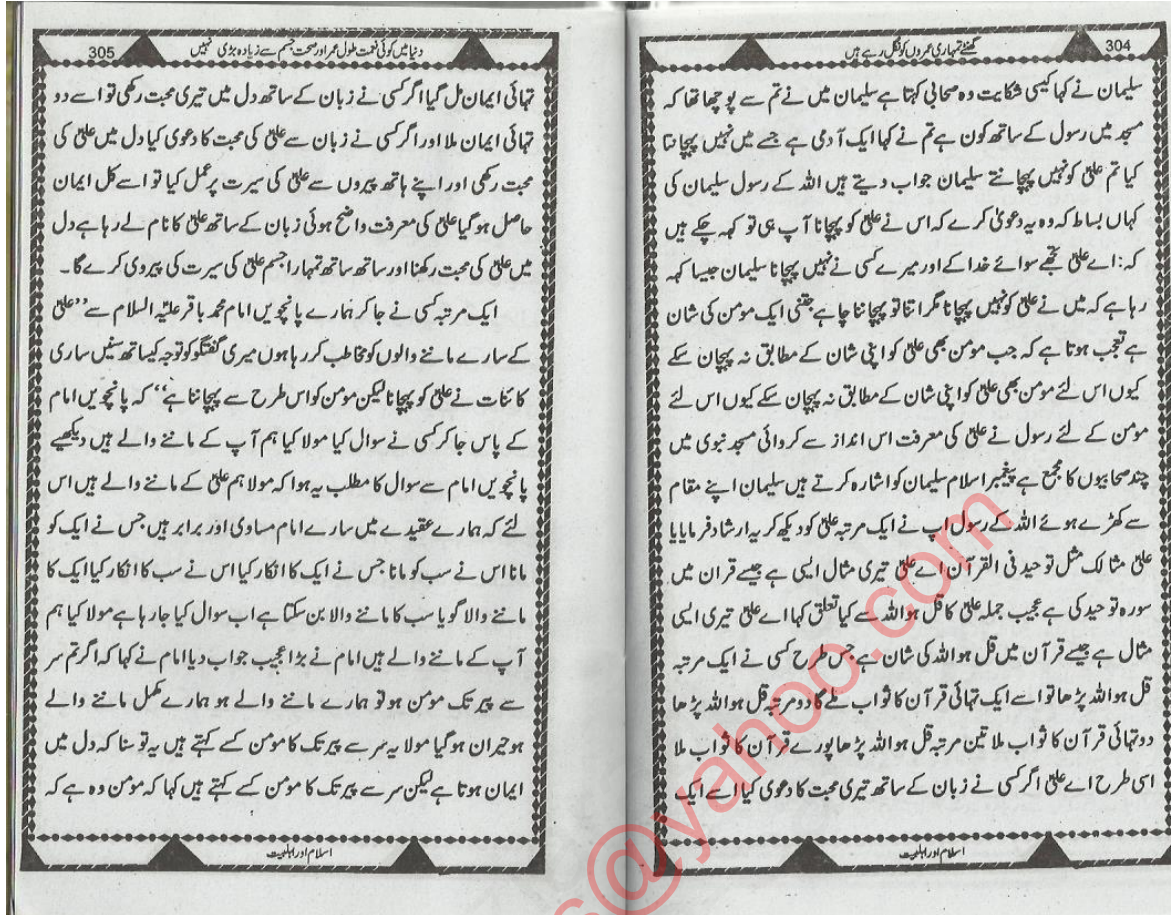 304 گھنٹے تمہاری عمروں کو نگل رہے ہیں
سلیمان نے کہا کیسی شکایت وہ صحابی کہتا ہے سلیمان میں نے تم سے پوچھا تھا کہ
مسجد میں رسول کے ساتھ کون ہے تم نے کہا ایک آدمی ہے جسے میں نہیں پہچانتا
کیا تم علیؑ کو نہیں پہچانتے سلیمان جواب دیتے ہیں اللہ کے رسول سلیمان کی
کہاں بساط کہ وہ یہ دعویٰ کرے کہ اس نے علیؑ کو پہچانا آپ ہی تو کہہ چکے ہیں
کہ: اے علیؑ تجھے سوائے خدا کے اور میرے کسی نے نہیں پہچانا سلیمان جیسا کہہ
رہا ہے کہ میں نے علیؑ کو نہیں پہچانا مگر اتنا تو پہچاننا چاہے جتنی ایک مومن کی شان
ہے تعجب ہوتا ہے کہ جب مومن بھی علیؑ کو اپنی شان کے مطابق نہ پہچان سکے
کیوں اس لئے مومن بھی علیؑ کو اپنی شان کے مطابق نہ پہچان سکے کیوں اس لئے
مومن کے لئے رسول نے علیؑ کی معرفت اس انداز سے کروائی مسجد نبوی میں
چند صحابیوں کا مجمع ہے پیغمبر اسلام سلیمان کو اشارہ کرتے ہیں سلیمان اپنے مقام
سے کھڑے ہوئے اللہ کے رسول اپ نے ایک مرتبہ علیؑ کو دیکھ کر یہ ارشاد فرمایایا
علیؑ مثا لک مثل توحید فی القرآن اے علیؑ تیری مثال ایسی ہے جیسے قران میں
سورہ توحید کی ہے عجیب جملہ علیؑ کا قل ہو اللہ سے کیا تعلق کہا اے علیؑ تیری ایسی
مثال ہے جیسے قرآن میں قل ہو اللہ کی شان ہے جس طرح کسی نے ایک مرتبہ
قل ہو اللہ پڑھا تو اسے ایک تہائی قرآن کا ثواب ملے گا دو مرتبہ قل ہو اللہ پڑھا
دو تہائی قرآن کا ثواب ملا تین مرتبہ قل ہو اللہ پڑھا پورے قرآن کا ثواب ملا
اسی طرح اے علیؑ اگر کسی نے زبان کے ساتھ تیری محبت کا دعوی کیا اسے ایک
اسلام اور اہلبیت
305 دنیا میں کوئی نعمت طول عمر اور صحت جسم سے زیادہ بڑی نہیں
تہائی ایمان مل گیا اگر کسی نے زبان کے ساتھ دل میں تیری محبت رکھی تو اسے دو
تہائی ایمان ملا اور اگر کسی نے زبان سے علیؑ کی محبت کا دعوی کیا دل میں علیؑ کی
محبت رکھی اور اپنے ہاتھ پیروں سے علیؑ کی سیرت پر عمل کیا تو اسے کل ایمان
حاصل ہو گیا علیؑ کی معرفت واضح ہوئی زبان کے ساتھ علیؑ کا نام لے رہا ہے دل
میں علیؑ کی محبت رکھنا اور ساتھ ساتھ تمہارا جسم علیؑ کی سیرت کی پیروی کرے گا۔
ایک مرتبہ کسی نے جا کر ہمارے پانچویں امام محمد باقر علیہ السلام سے ’’علیؑ
کے سارے ماننے والوں کو مخاطب کر رہا ہوں میری گفتگو کو توجہ کیساتھ سنیں ساری
کائنات نے علیؑ کو پہچانا لیکن مومن کو اس طرح سے پہچاننا ہے‘‘ کہ پانچویں امام
کے پاس جا کر کسی نے سوال کیا مولا کیا ہم آپ کے ماننے والے ہیں دیکھیے
پانچویں امام سے سوال کا مطلب یہ ہوا کہ مولا ہم علیؑ کے ماننے والے ہیں اس
لئے کہ ہمارے عقیدے میں سارے امام مساوی اور برابر ہیں جس نے ایک کو
مانا اس نے سب کو مانا جس نے ایک کا انکار کیا اس نے سب کا انکار کیا ایک کا
ماننے والا گویا سب کا ماننے والا بن سکتا ہے اب سوال کیا جا رہا ہے مولا کیا ہم
آپ کے ماننے والے ہیں امام نے بڑا عجیب جواب دیا امام نے کہا کہ اگر تم سر
سے پیر تک مومن ہو تو ہمارے ماننے والے ہو ہمارے مکمل ماننے والے
ہو حیران ہو گیا مولا یہ سر سے پیر تک کا مومن کسے کہتے ہیں یہ تو سنا کہ دل میں
ایمان ہوتا ہے لیکن سر سے پیر تک کا مومن کسے کہتے ہیں کہا کہ مومن وہ ہے کہ
اسلام اور اہلبیت
s@yahoo.com